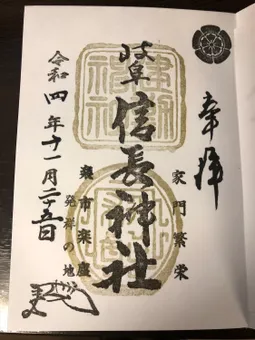 奉拝
建勲神社
岐阜
信長神社
家門繁栄
楽市楽座
発祥の地
令和四年十一月二十五日